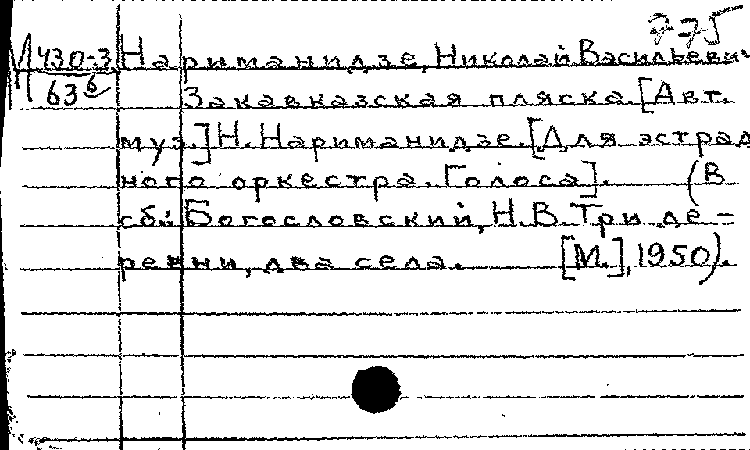 775
М 430-3 Нариманидзе, Николай Васильевич
63 б Закавказская пляска. [Авт.
муз.] Н. Нариманидзе. [Для эстрад
ного оркестра. Голоса]. (В
сб.: Богословский, Н.В. Три де-
ревни, два села. [М.], 1950).